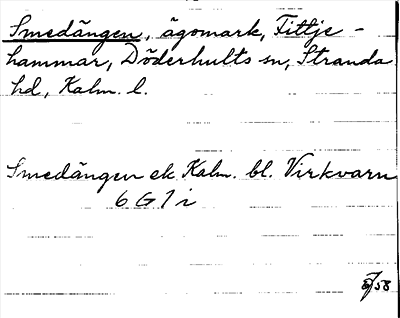 Smedängen, ägomark, Fittje-
hammar, Döderhults sn, Stranda
hd, Kalm. l.
Smedängen ek. Kalm. bl. Virkvarn
6 G 7 i
58